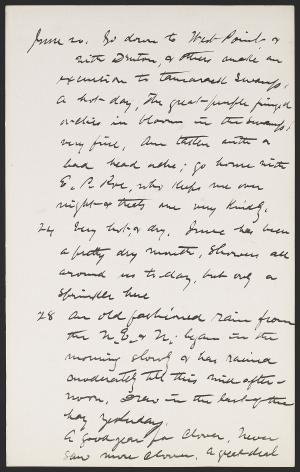 June 20. Go down to West Point &
with Denton, & others make an
excursion to tamarack swamp,
A hot day, The great purple fringed
orchis in bloom in the swamp;
very fine, Am taken with a
bad head ache; go home with
E. P. Roe, who keeps me over
night & treats me very kindly.
24 Very hot & dry. June has been
a pretty dry month, Showers all
around us to-day, but only a
sprinkle here
28 An old fashioned rain from
the N.E. & N; began in the
morning slowly & has rained
moderately till this mid after-
noon, Drew in the last of the
hay yesterday.
A good year for clover, never
saw more clover, A great deal